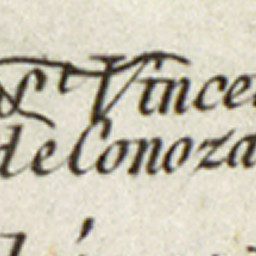 St Vince
de Conoza